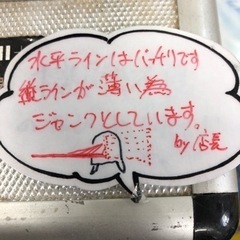 水平ラインはバッチリです
縦ラインが薄い為
ジャンクとしています。
by 店長